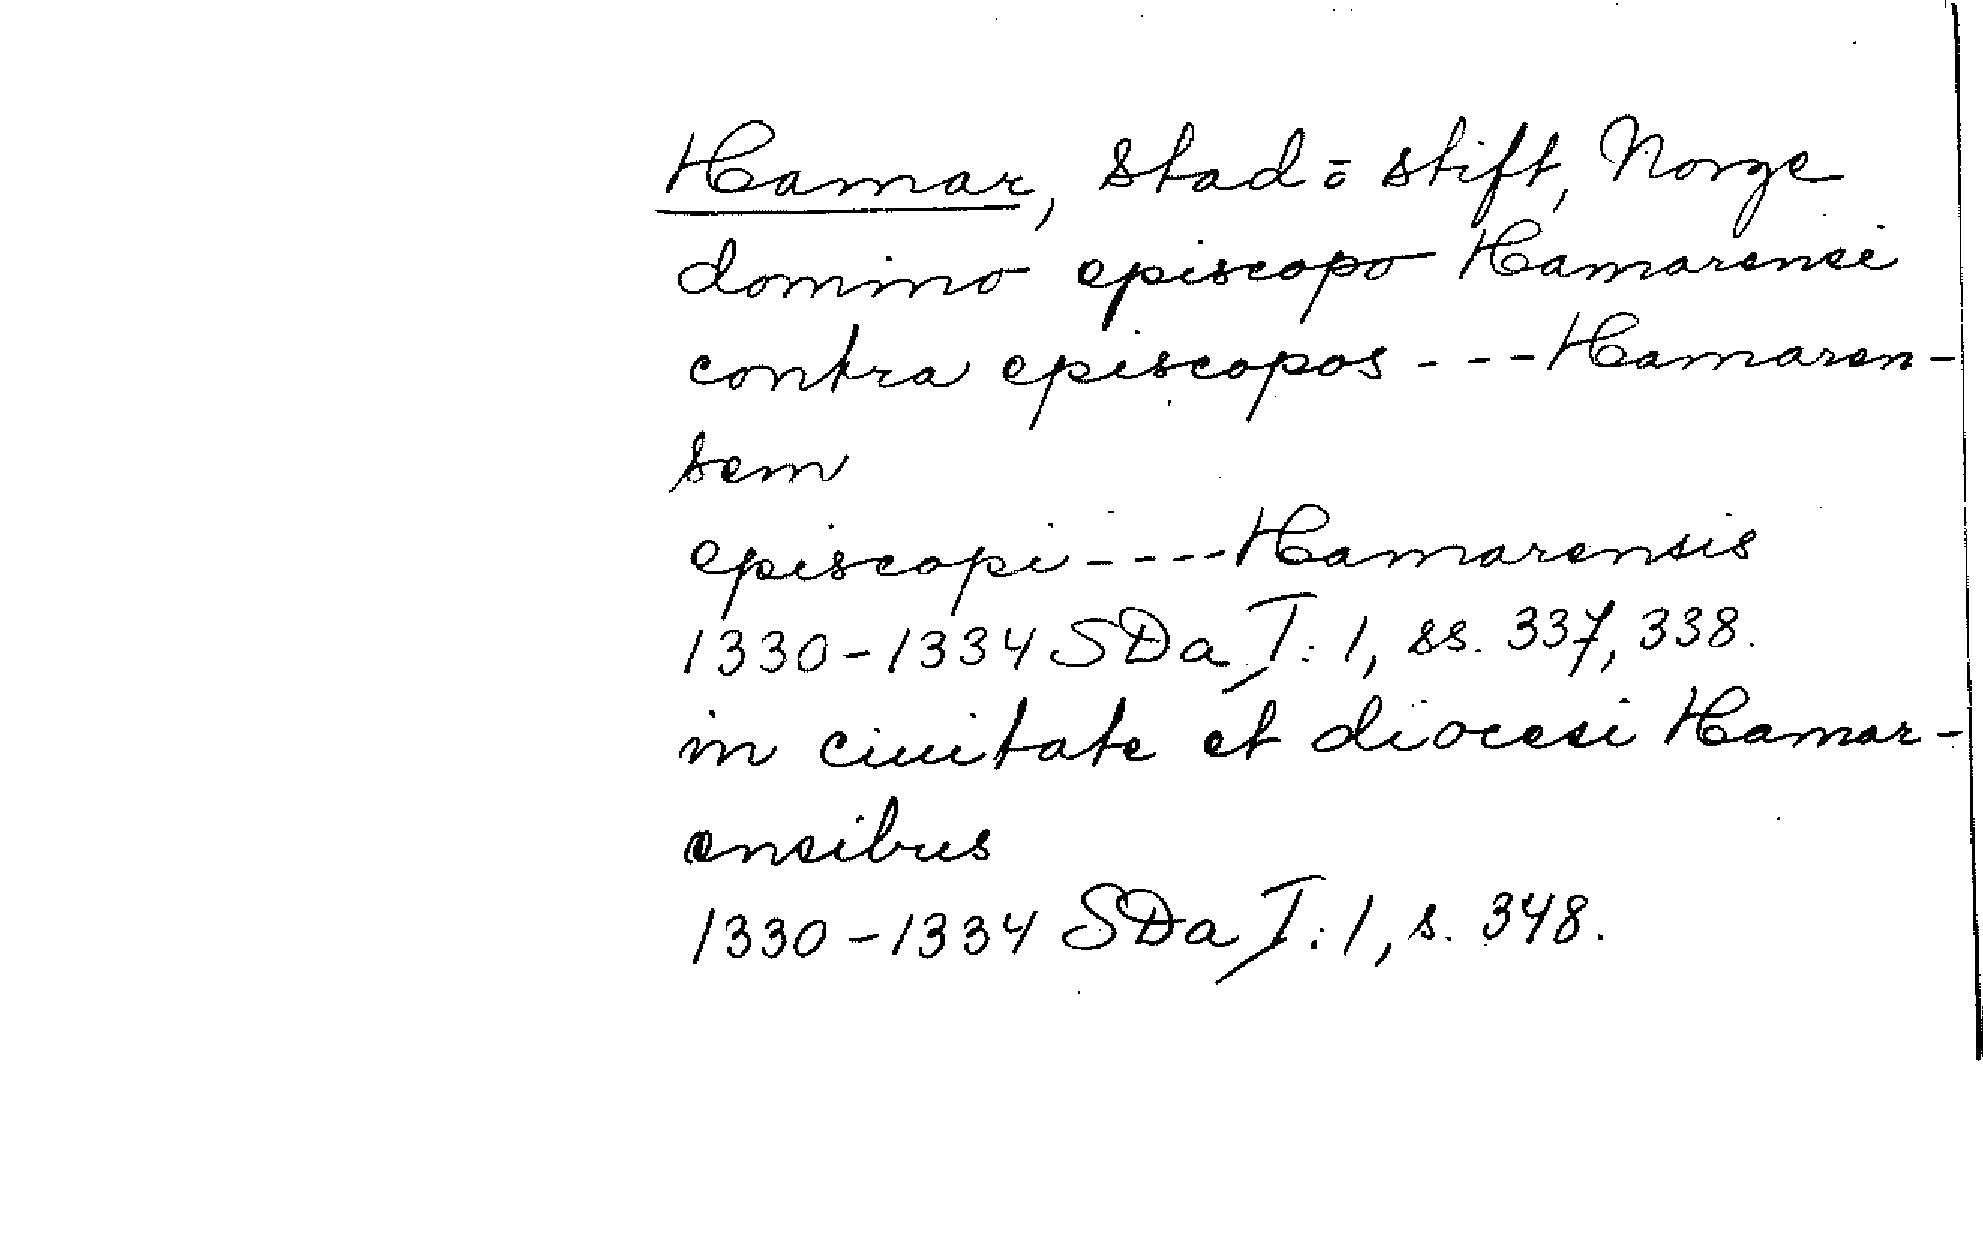 Hamar, stad o stift, Norge
domino episcopo Hamarensi
contra episcopos --- Hamaren-
sem
episcopi ---- Hamarensis
1330-1334 SDa I:1, ss. 337, 338.
in ciuitate et diocesi Hamar-
ensibus
1330-1334 SDa I:1, s. 348.